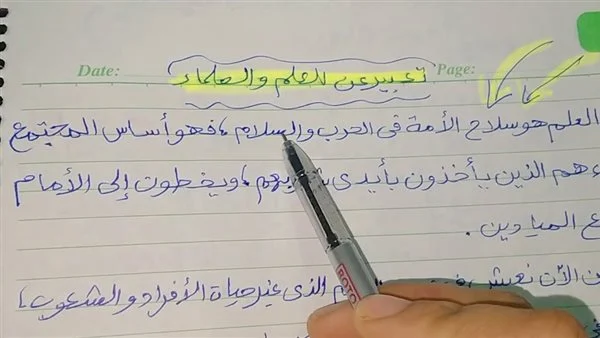 Date: Page:
تعبير عن العلم والعلماء
العلم هو سلاح الأمة فى الحرب والسلام، فهو أساس المجتمع
ء هم الذين يأخذون بأيدى ويخطون إلى الأمام
ع الميادين.
ن الآن نعيش الذى غير حيات الأفراد والشعوب،
ROTO